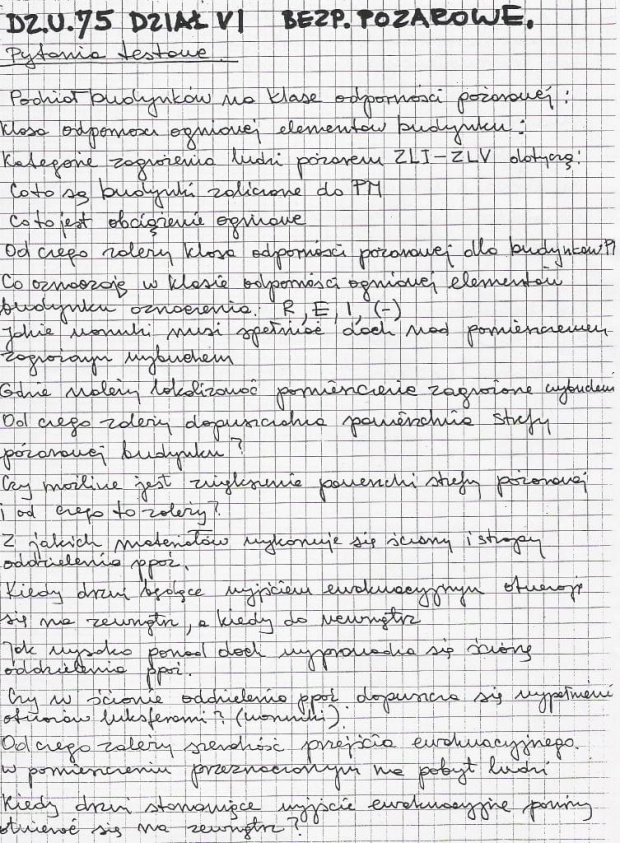 DZ.U.75 DZIAŁ VI BEZP. POŻAROWE.
Pytania testowe
Podział budynków na klasę odporności pożarowej :
Klasa odporności ogniowej elementów budynku :
Kategorie zagrożenia ludzi pożarem ZLI-ZLV dotyczą:
Co to są budynki zaliczone do PM
Co to jest obciążenie ogniowe
Od czego zależy klasa odporności pożarowej dla budynków PM
Co oznaczają w klasie odporności ogniowej elementów
budynku oznaczenia. R, E, I, (-)
Jakie warunki musi spełniać dach nad pomieszczeniem
zagrożonym wybuchem
Gdzie należy lokalizować pomieszczenie zagrożone wybuchem
Od czego zależy dopuszczalna powierzchnia strefy
pożarowej budynku ?
Czy możliwe jest zwiększenie powierzchni strefy pożarowej
i od czego to zależy?
Z jakich materiałów wykonuje się ściany i stropy
oddzielenia ppoż.
Kiedy drzwi będące wyjściem ewakuacyjnym otwierają
się na zewnątrz, a kiedy do wewnątrz
Jak wysoko ponad dach wyprowadza się ścianę
oddzielenia ppoż.
Czy w ścianie oddzielenia ppoż dopuszcza się wypełnienie
otworów luksferami ? (warunki)
Od czego zależy szerokość przejścia ewakuacyjnego.
w pomieszczeniu przeznaczonym na pobyt ludzi
Kiedy drzwi stanowiące wyjście ewakuacyjne powinny
otwierać się na zewnątrz ?